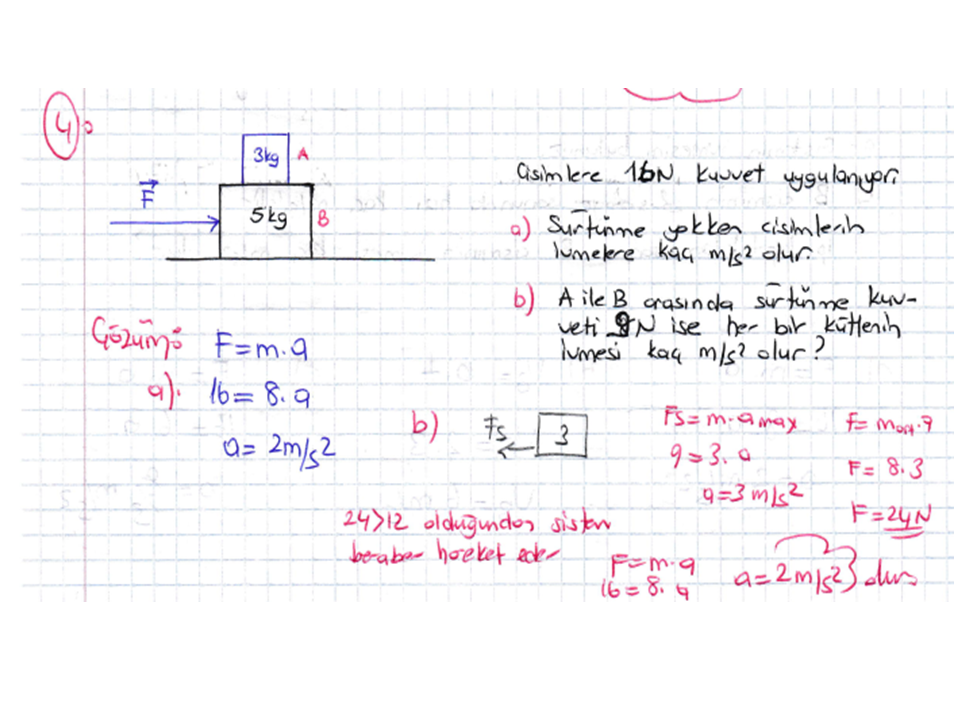 4)
3kg A
F
5kg B
Cisimlere 16N kuvvet uygulanıyor.
a) Sürtünme yokken cisimlerin
ivmelere kaç m/s² olur.
b) A ile B arasında sürtünme kuv-
veti 9N ise her bir kütlenin
ivmesi kaç m/s² olur?
Çözüm:
F=m.a
a). 16=8.a
a=2m/s²
b) Fs 3
Fs=m.a max
9=3.a
a=3m/s²
F=
F=8.3
F=24N
24>12 olduğundan sistem
beraber hareket eder
F=m.a
16=8.a
a=2m/s² olur